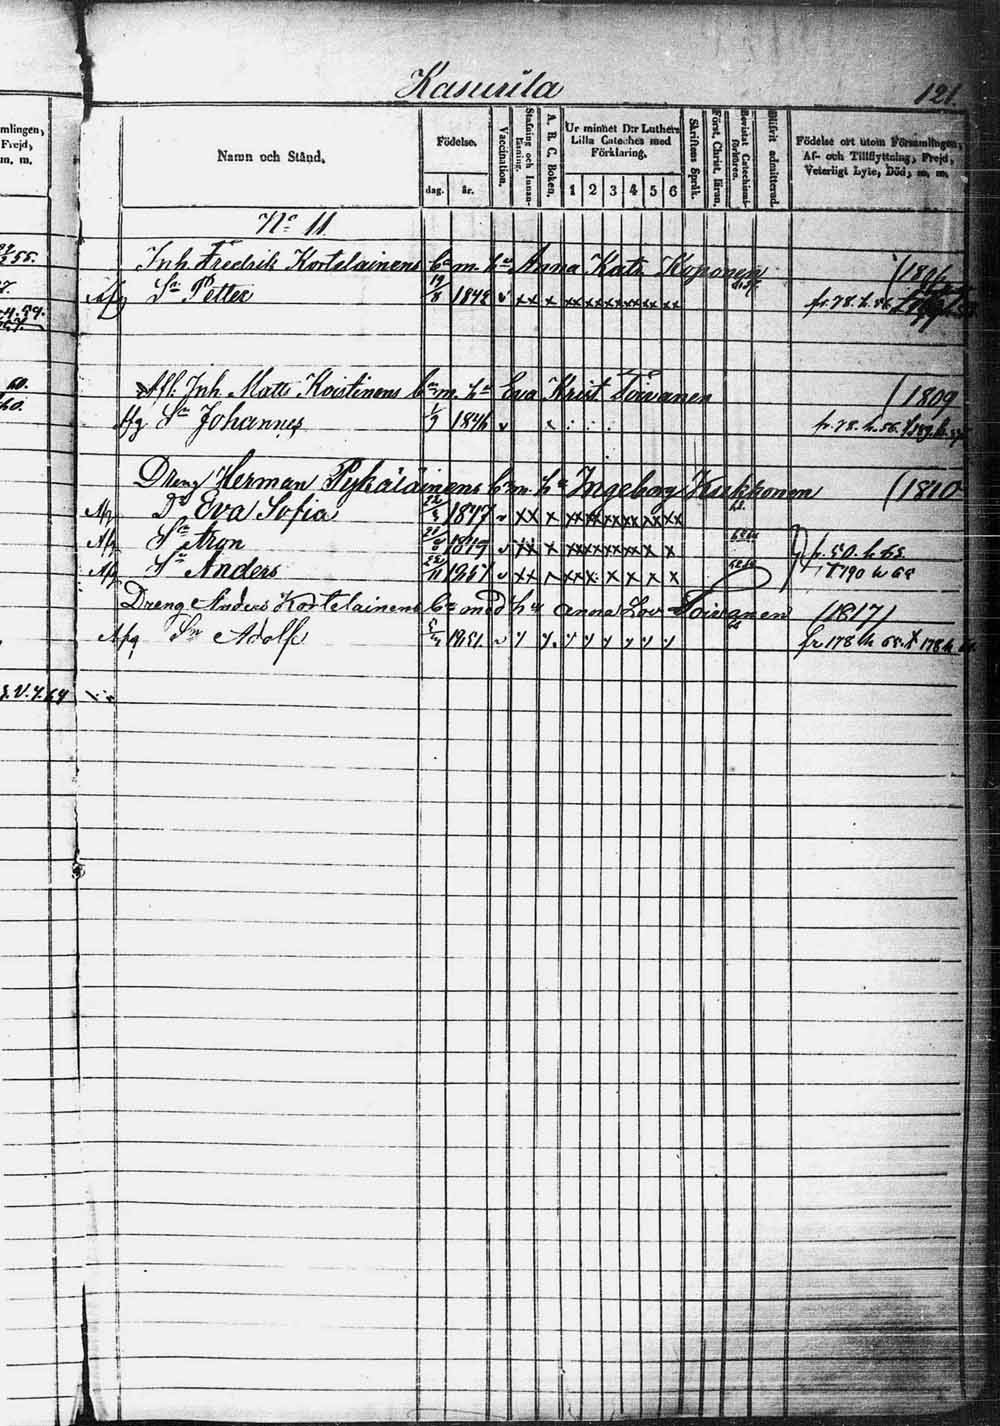 Kasurila 121
Namn och Stånd.
Födelse.
dag. år.
Vaccination.
Stafning och Innanläsning.
A. B. C. Boken.
Ur minnet D:r Luthers
Lilla Cateches med
Förklaring.
1 2 3 4 5 6
Skriftens Språk.
Först. Christ. läran.
Bevistat Catechismiförhören.
Blifvit admitterad.
Födelse ort utom Församlingen,
Af- och Tillflyttning, Frejd,
Veterligt Lyte, Död, m. m.
mlingen,
Frejd,
m. m.
No 11
Inh Fredrik Kortelainens Bn m. hu Anna Kath Koponen (1806
Sn Petter 19/8 1842 v xx x xx xx xx xx xx xx fr. 78. h. 56.
Afl. Inh Matts Koistinens Bn m. hu Eva Krist Toivanen (1809
Afg Sn Johannes 1/9 1846 v x fr. 78. h. 56.
Dreng Herman Pykäläinens Bn m. hu Ingeborg Kukkonen (1810
Afg Dr Eva Sofia 1847 v xx x xx xx xx xx xx xx
Afg Sn Aron 1849 v xx x xx xx xx xx x x fr. 50. h. 63.
Afg Sn Anders 1851 v xx x xx x x x x x 1790 h 68
Dreng Anders Kortelainens Bn med hu Anna Lov Toivanen (1817)
Afg Sn Adolf 1851. v fr 178 h 65. 178 h